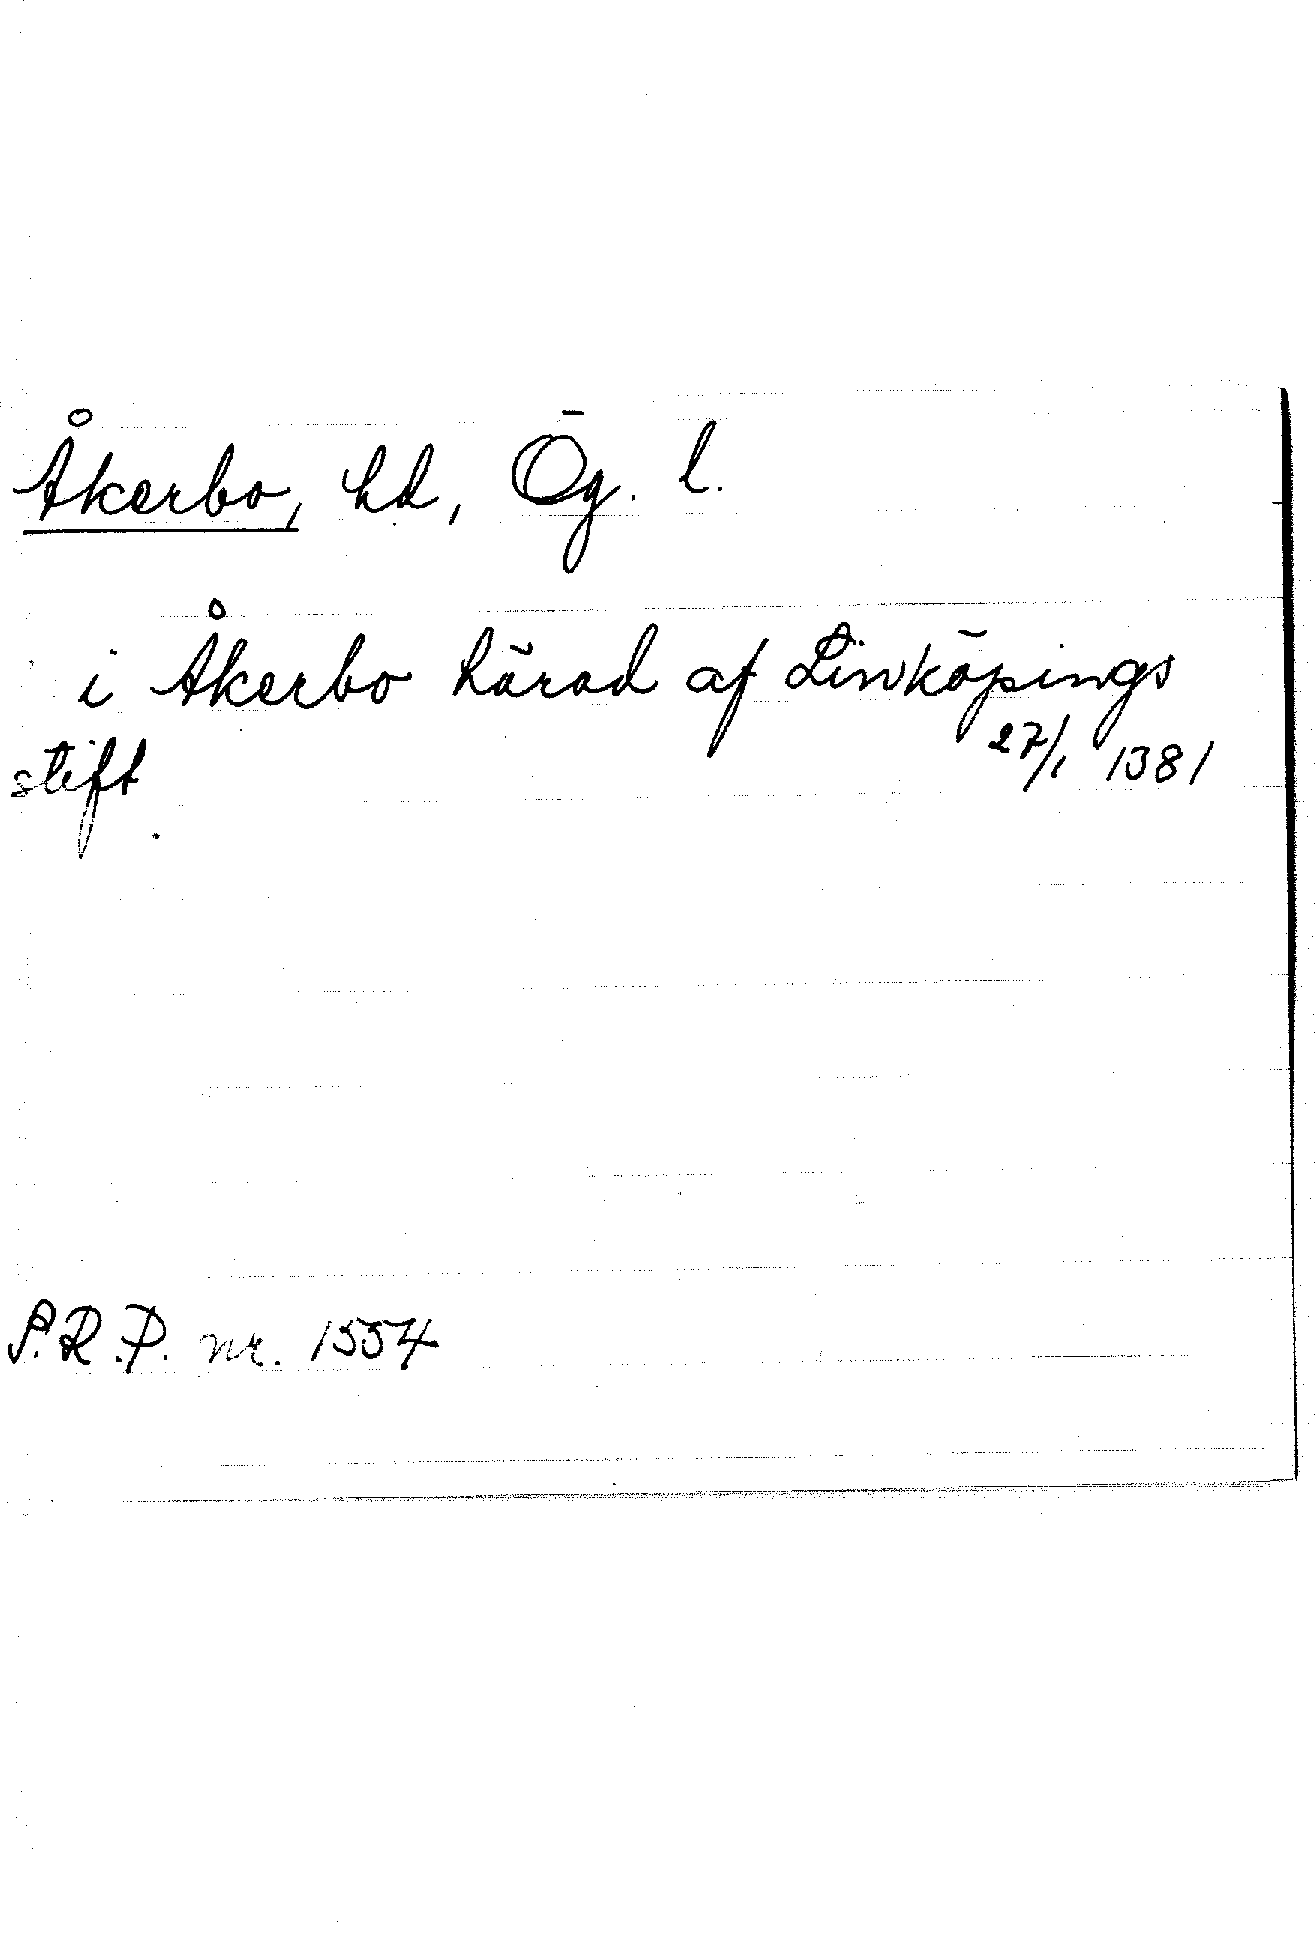 Åkerbo, hd, Ög. l.
i Åkerbo härad af Linköpings
stift 27/1 1381
S.R.P. nr. 1554